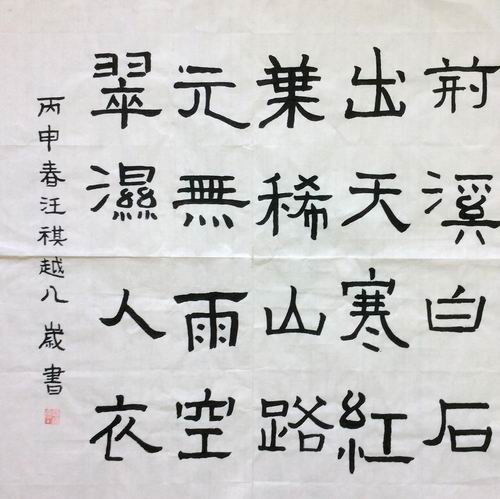 荊溪白石
出天寒紅
葉稀山路
元無雨空
翠濕人衣
丙申春汪祺越八歲書